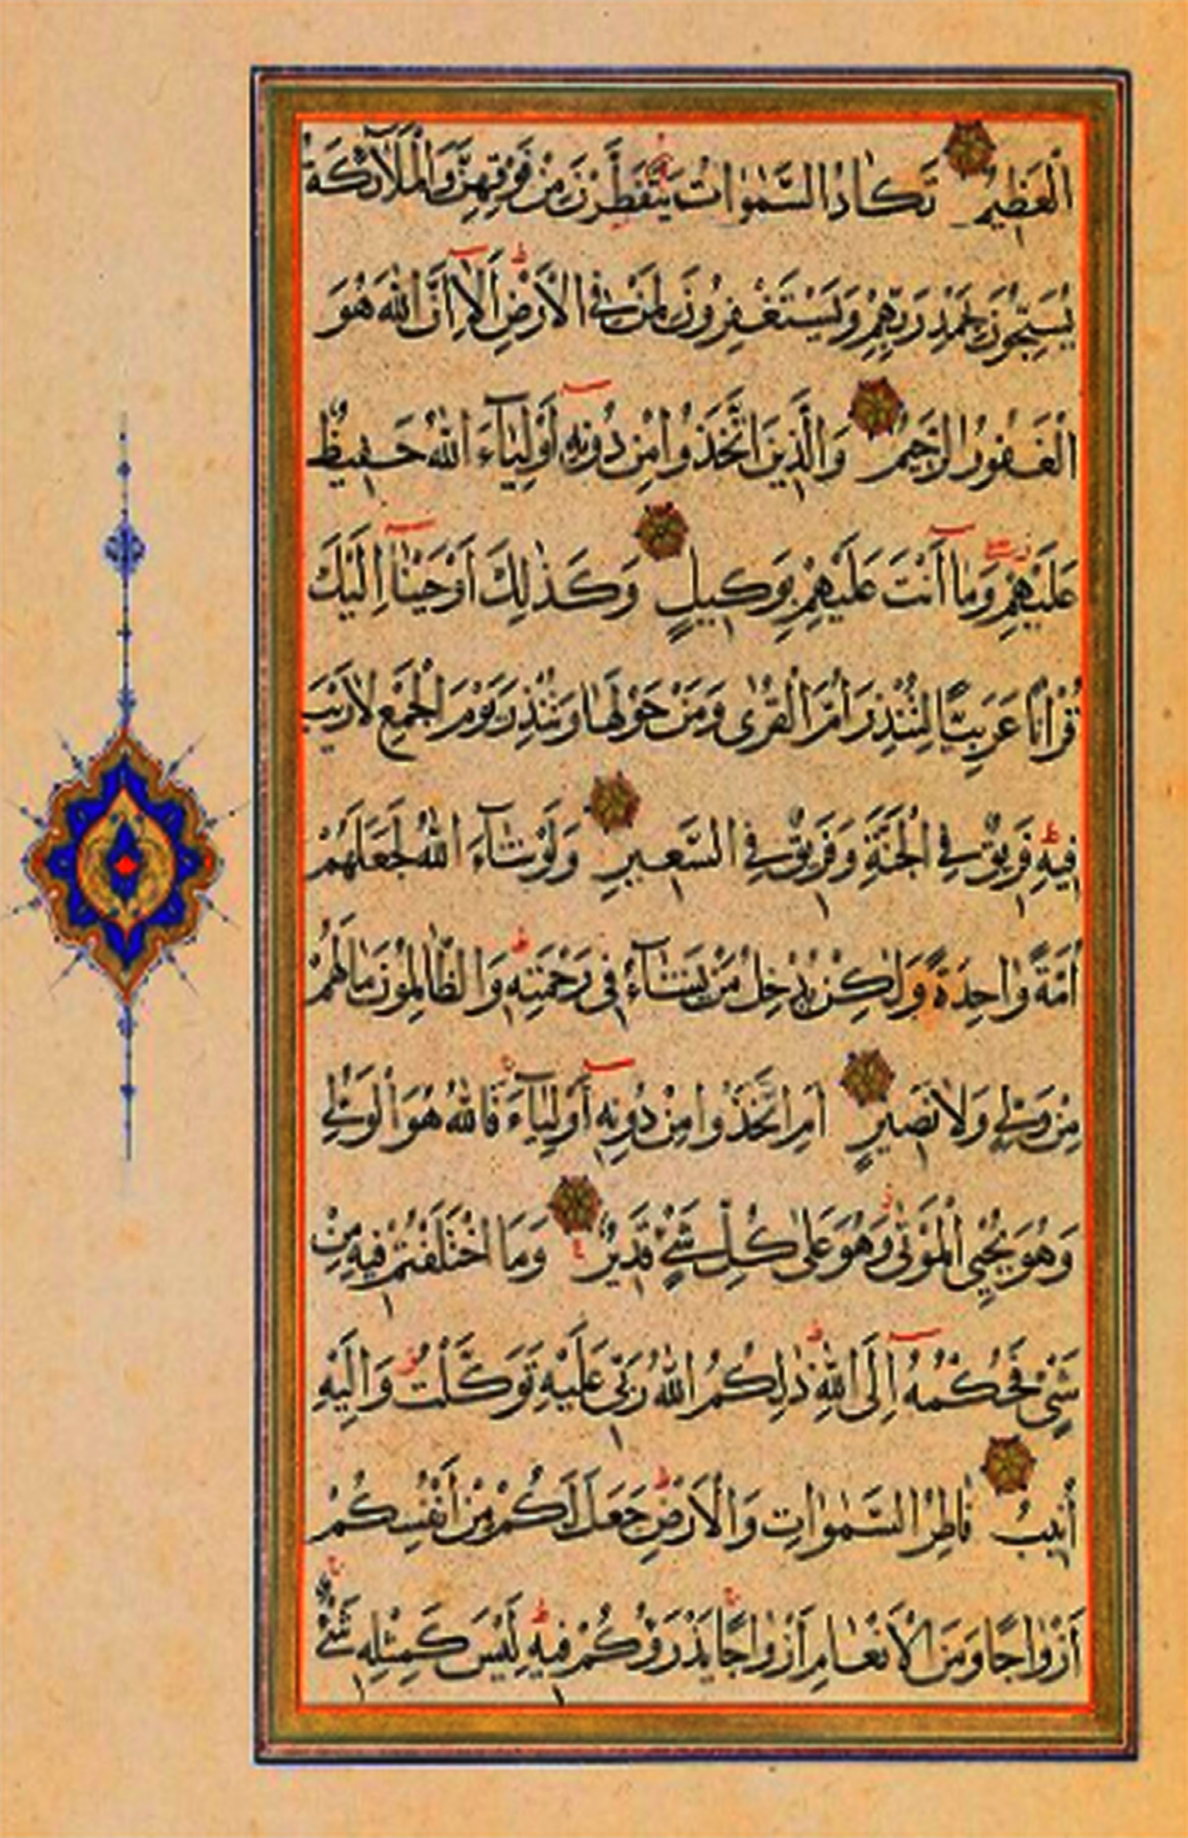 الْعَظِيمُ تَكَادُ السَّمٰوَاتُ يَتَفَطَّرْنَ مِنْ فَوْقِهِنَّ وَالْمَلَآئِكَةُ
يُسَبِّحُونَ بِحَمْدِ رَبِّهِمْ وَيَسْتَغْفِرُونَ لِمَنْ فِي الْاَرْضِ اَلَآ اِنَّ اللّٰهَ هُوَ
الْغَفُورُ الرَّحِيمُ وَالَّذِينَ اتَّخَذُوا مِنْ دُونِهِ اَوْلِيَآءَ اللّٰهُ حَفِيظٌ
عَلَيْهِمْ وَمَا اَنْتَ عَلَيْهِمْ بِوَكِيلٍ وَكَذٰلِكَ اَوْحَيْنَا اِلَيْكَ
قُرْاٰنًا عَرَبِيًّا لِتُنْذِرَ اُمَّ الْقُرٰى وَمَنْ حَوْلَهَا وَتُنْذِرَ يَوْمَ الْجَمْعِ لَارَيْبَ
فِيهِ فَرِيقٌ فِي الْجَنَّةِ وَفَرِيقٌ فِي السَّعِيرِ وَلَوْ شَآءَ اللّٰهُ لَجَعَلَهُمْ
اُمَّةً وَاحِدَةً وَلٰكِنْ يُدْخِلُ مَنْ يَشَآءُ فِي رَحْمَتِهِ وَالظَّالِمُونَ مَا لَهُمْ
مِنْ وَلِيٍّ وَلَا نَصِيرٍ اَمِ اتَّخَذُوا مِنْ دُونِهِ اَوْلِيَآءَ فَاللّٰهُ هُوَ الْوَلِيُّ
وَهُوَ يُحْيِي الْمَوْتٰى وَهُوَ عَلٰى كُلِّ شَيْءٍ قَدِيرٌ وَمَا اخْتَلَفْتُمْ فِيهِ مِنْ
شَيْءٍ فَحُكْمُهُ اِلَى اللّٰهِ ذٰلِكُمُ اللّٰهُ رَبِّي عَلَيْهِ تَوَكَّلْتُ وَاِلَيْهِ
اُنِيبُ فَاطِرُ السَّمٰوَاتِ وَالْاَرْضِ جَعَلَ لَكُمْ مِنْ اَنْفُسِكُمْ
اَزْوَاجًا وَمِنَ الْاَنْعَامِ اَزْوَاجًا يَذْرَؤُكُمْ فِيهِ لَيْسَ كَمِثْلِهِ شَيْءٌ